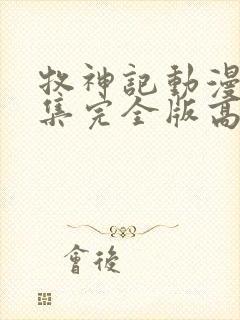 牧神記動漫
集完全版高
會後